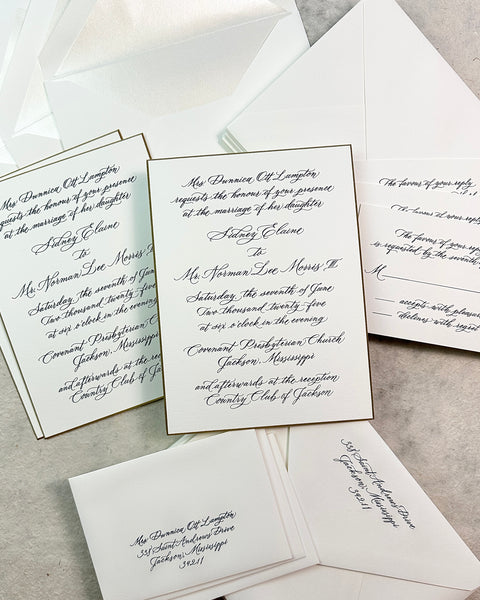 Mrs Dunnica Ott Lampton
requests the honour of your presence
at the marriage of her daughter
Sidney Elaine
to
Mr. Norman Lee Morris III
Saturday, the seventh of June
Two thousand twenty-five
at six o'clock in the evening
Covenant Presbyterian Church
Jackson, Mississippi
and afterwards at the reception
Country Club of Jackson
Mrs Dunnica Ott Lampton
requests the honour of your presence
at the marriage of her daughter
Sidney Elaine
to
Mr. Norman Lee Morris
Saturday, the seventh of June
Two thousand twenty-five
at six o'clock in the evening
Covenant Presbyterian
Jackson, Mississippi
and afterwards at the
Country Club of Jack
The favour of your reply
The favour of your reply
The favour of your reply
is requested by the seventh
M
accepts with pleasure
declines with regret
Mrs Dunnica Ott Lampton
338 Saint Andrews Drive
Jackson, Mississippi
39211
338 Saint Andrews Drive
Jackson, Mississippi
39211